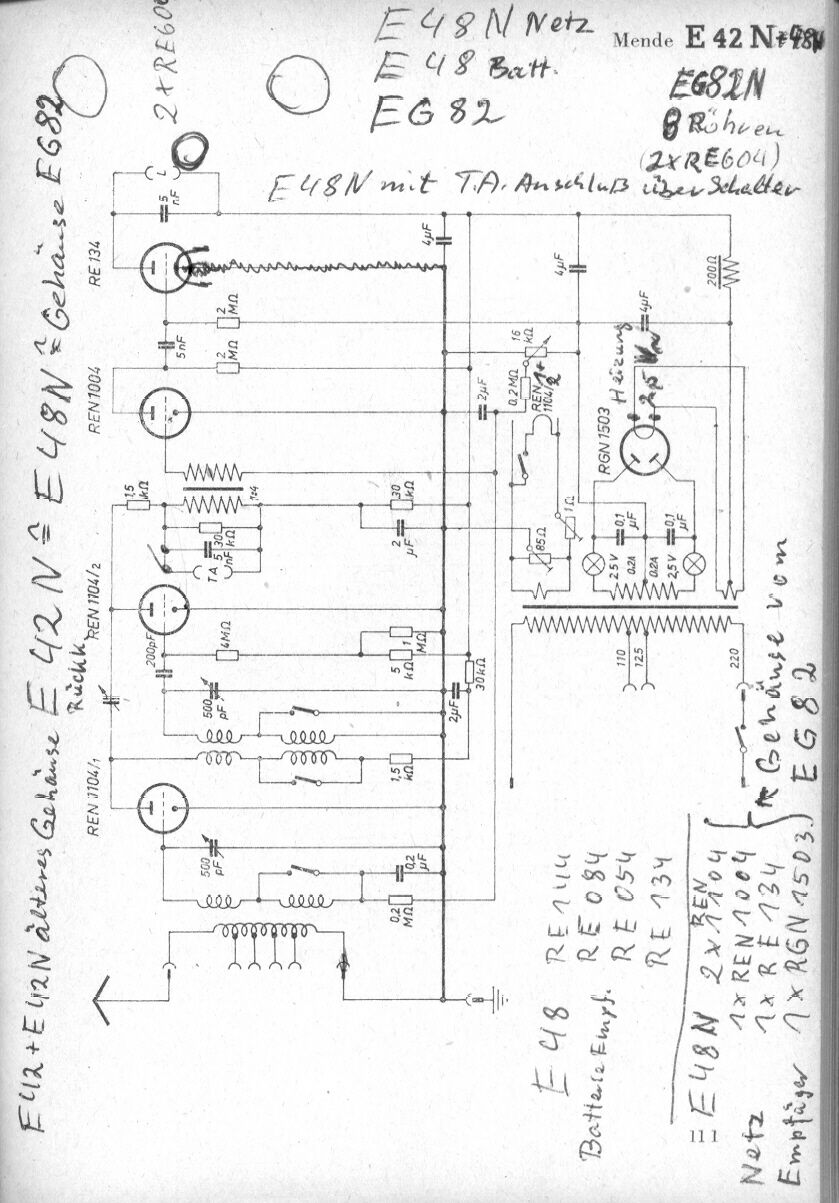 E 48 N Netz
E 48 Batt.
EG 82
Mende E 42 N + 48 N
EG82N
8 Röhren
(2xRE604)
E48N mit T.A. Anschluß über Schalter
2 x RE604
E42 + E42N älteres Gehäuse E 42 N ≙ E 48 N ≙ Gehäuse EG82
Rückk.
REN 1104/1
REN 1104/2
REN 1004
RE 134
L
5 nF
4µF
4µF
4µF
200Ω
2 MΩ
2 MΩ
5nF
16 kΩ
0,2MΩ
2µF
REN 1104/1+2
Heizung
2,5
RGN 1503
1,5 kΩ
1:4
30 kΩ
5 nF
TA
30 kΩ
2 µF
85Ω
1Ω
0,1 µF
0,1 µF
2,5V
0,2A
0,2A
2,5V
200pF
4MΩ
5 kΩ
1 MΩ
30kΩ
2µF
500 pF
1,5 kΩ
500 pF
0,2 µF
0,2 MΩ
110
125
220
E 48
Batterie Empf.
RE 144
RE 084
RE 054
RE 134
E 48 N
Netz
Empfäger
2 x REN 1104
1 x REN 1004
1 x RE 134
1 x RGN 1503.
Gehäuse vom
EG 82
111